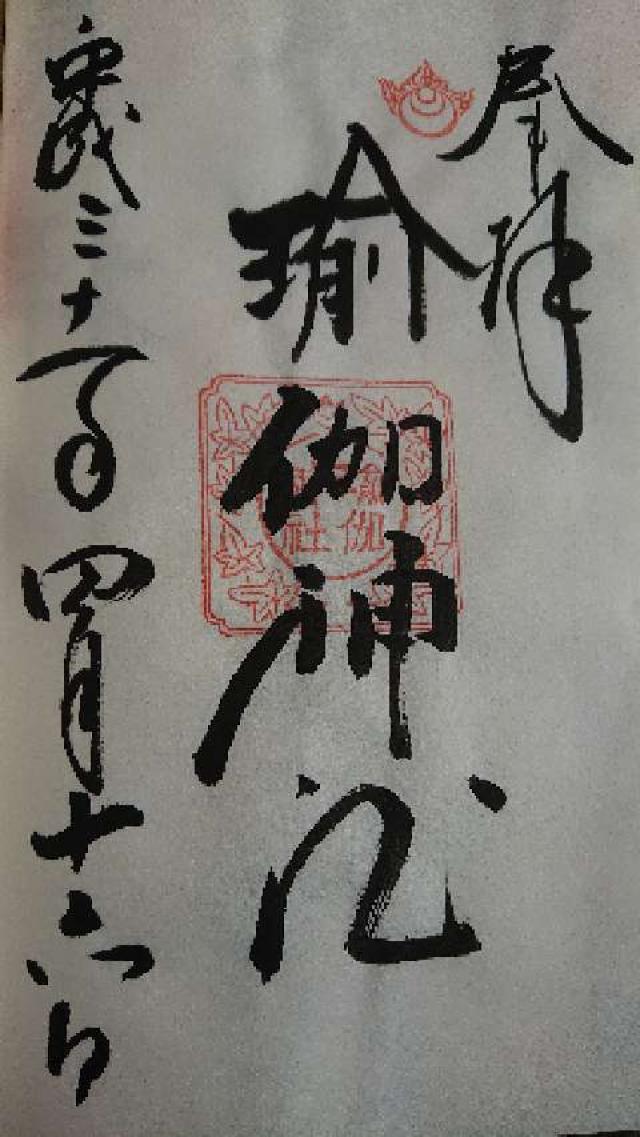 拝
瑜伽神社
平成三十年四月十六日
瑜伽
神社